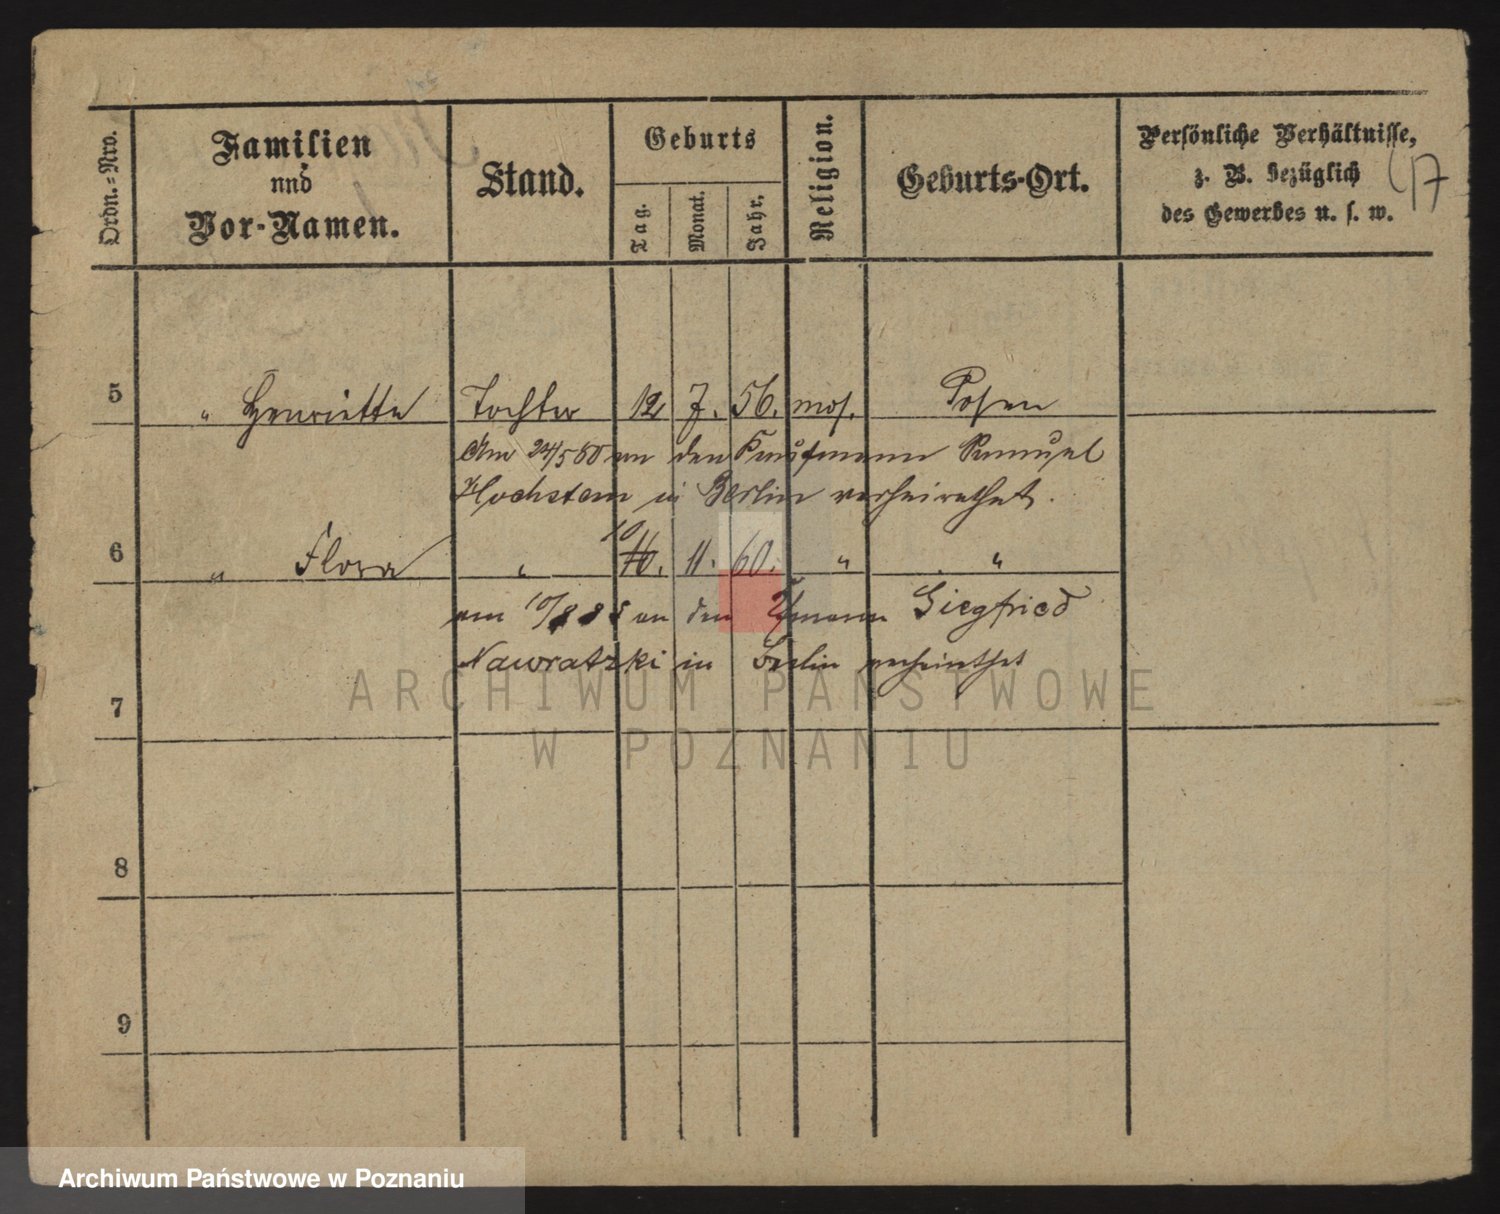 Ordn.-Nro.
Familien
und
Vor-Namen.
Stand.
Geburts
Tag.
Monat.
Jahr.
Religion.
Geburts-Ort.
Persönliche Verhältnisse,
z. B. bezüglich
des Gewerbes u. s. w.
17
5 " Henriette Tochter 12 7. 56. mos. Posen
Am 24/5 80 an den Kaufmann Samuel
Hochstem in Berlin verheirathet.
10
6 " Flora " 16. 11. 60. " "
am 10/8 88 an den Kfmann Siegfried
Nawratzki in Berlin verheirathet
7
8
9
ARCHIWUM PAŃSTWOWE
W POZNANIU
Archiwum Państwowe w Poznaniu